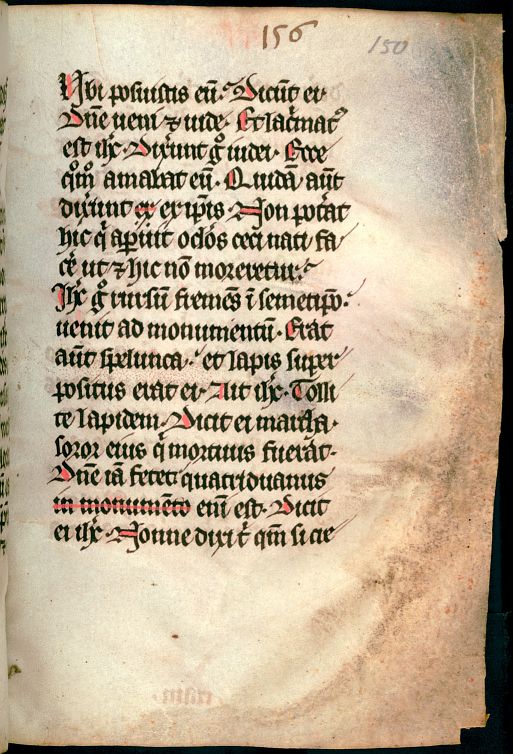 156
150
Vbi posuistis eū. Dicūt ei
Dn̄e ueni ⁊ uide. Et lacͥmatꝰ
est ih̄c. Dixer̄unt gͦ iudei. Ecce
qͦm̊ amabat eū. Quidā aūt
dixer̄unt ex ex ip̄is. Non poterat
hic q̇ aperuit oclōs ceci nati fa
cer̄ ut ⁊ hic nō moreretur.
Ih̄c gͦ rursū fremēs ī semetip̄o.
uenit ad monumentū. Erat
aūt spelunca. et lapis super
positus erat ei. Ait ih̄c. Tolli
te lapidem. Dicit ei martha.
soror eius q̇ mortuus fuerat.
Dn̄e iā fetet quatriduanus
in monumēto enī est. Dicit
ei ih̄c. Nonne dixi t̄ qm̄ si cre